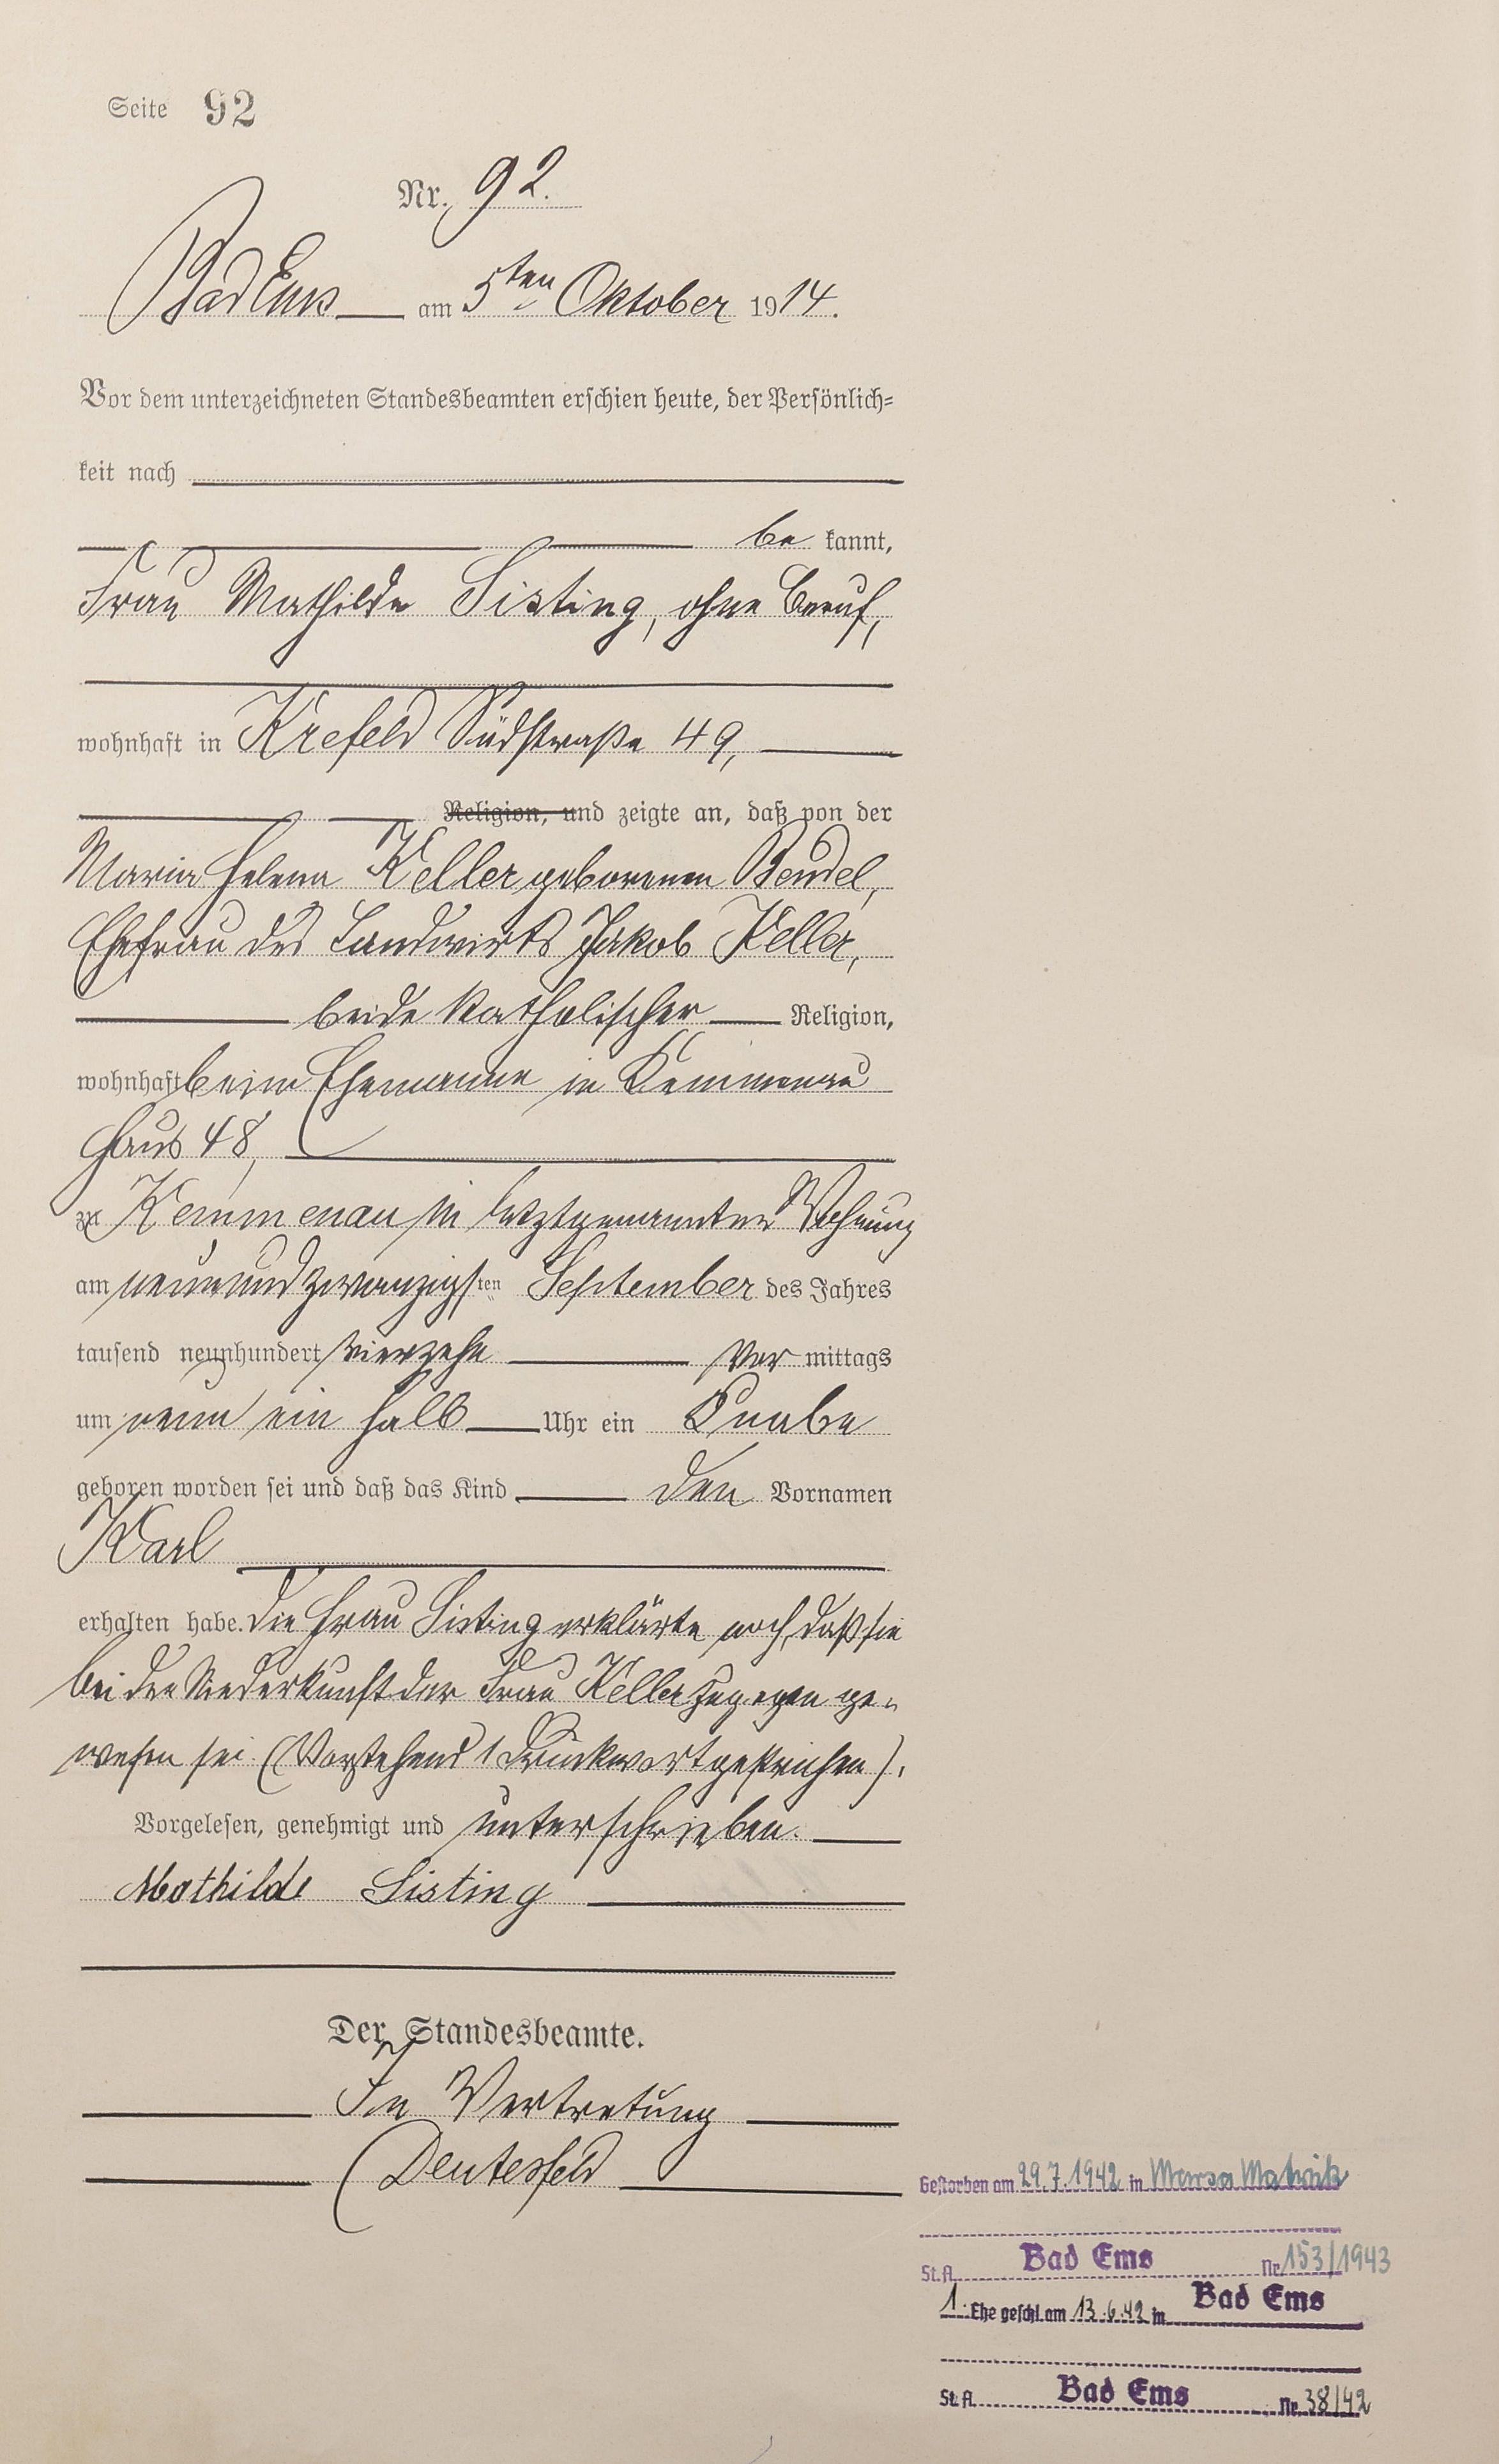 Seite 92
Nr. 92.
Bad Ems am 5ten Oktober 1914.
Vor dem unterzeichneten Standesbeamten erschien heute, der Persönlich=
keit nach
be kannt,
Frau Mathilde Sisting, ohne Beruf,
wohnhaft in Krefeld Südstraße 49,
Religion, und zeigte an, daß von der
Maria Helena Keller geborenen Bendel,
Ehefrau des Landwirts Jakob Keller,
beide katholischer Religion,
wohnhaft beim Ehemanne in Kemmenau
Haus 48,
zu Kemmenau in letztgenannter Wohnung
am neunundzwanzigsten September des Jahres
tausend neunhundert vierzehn Vor mittags
um neun ein halb Uhr ein Knabe
geboren worden sei und daß das Kind den Vornamen
Karl
erhalten habe. Die Frau Sisting erklärte noch, daß sie
bei der Niederkunft der Frau Keller zugegen ge-
wesen sei. (Vorstehend 1 Druckwort gestrichen).
Vorgelesen, genehmigt und unterschrieben.
Mathilde Sisting
Der Standesbeamte.
In Vertretung
Deutesfeld
Gestorben am 29.7.1942 in Marsa Matruk
St. A. Bad Ems Nr. 153/1943
1. Ehe geschl. am 13.6.42 in Bad Ems
St. A. Bad Ems Nr. 38/42